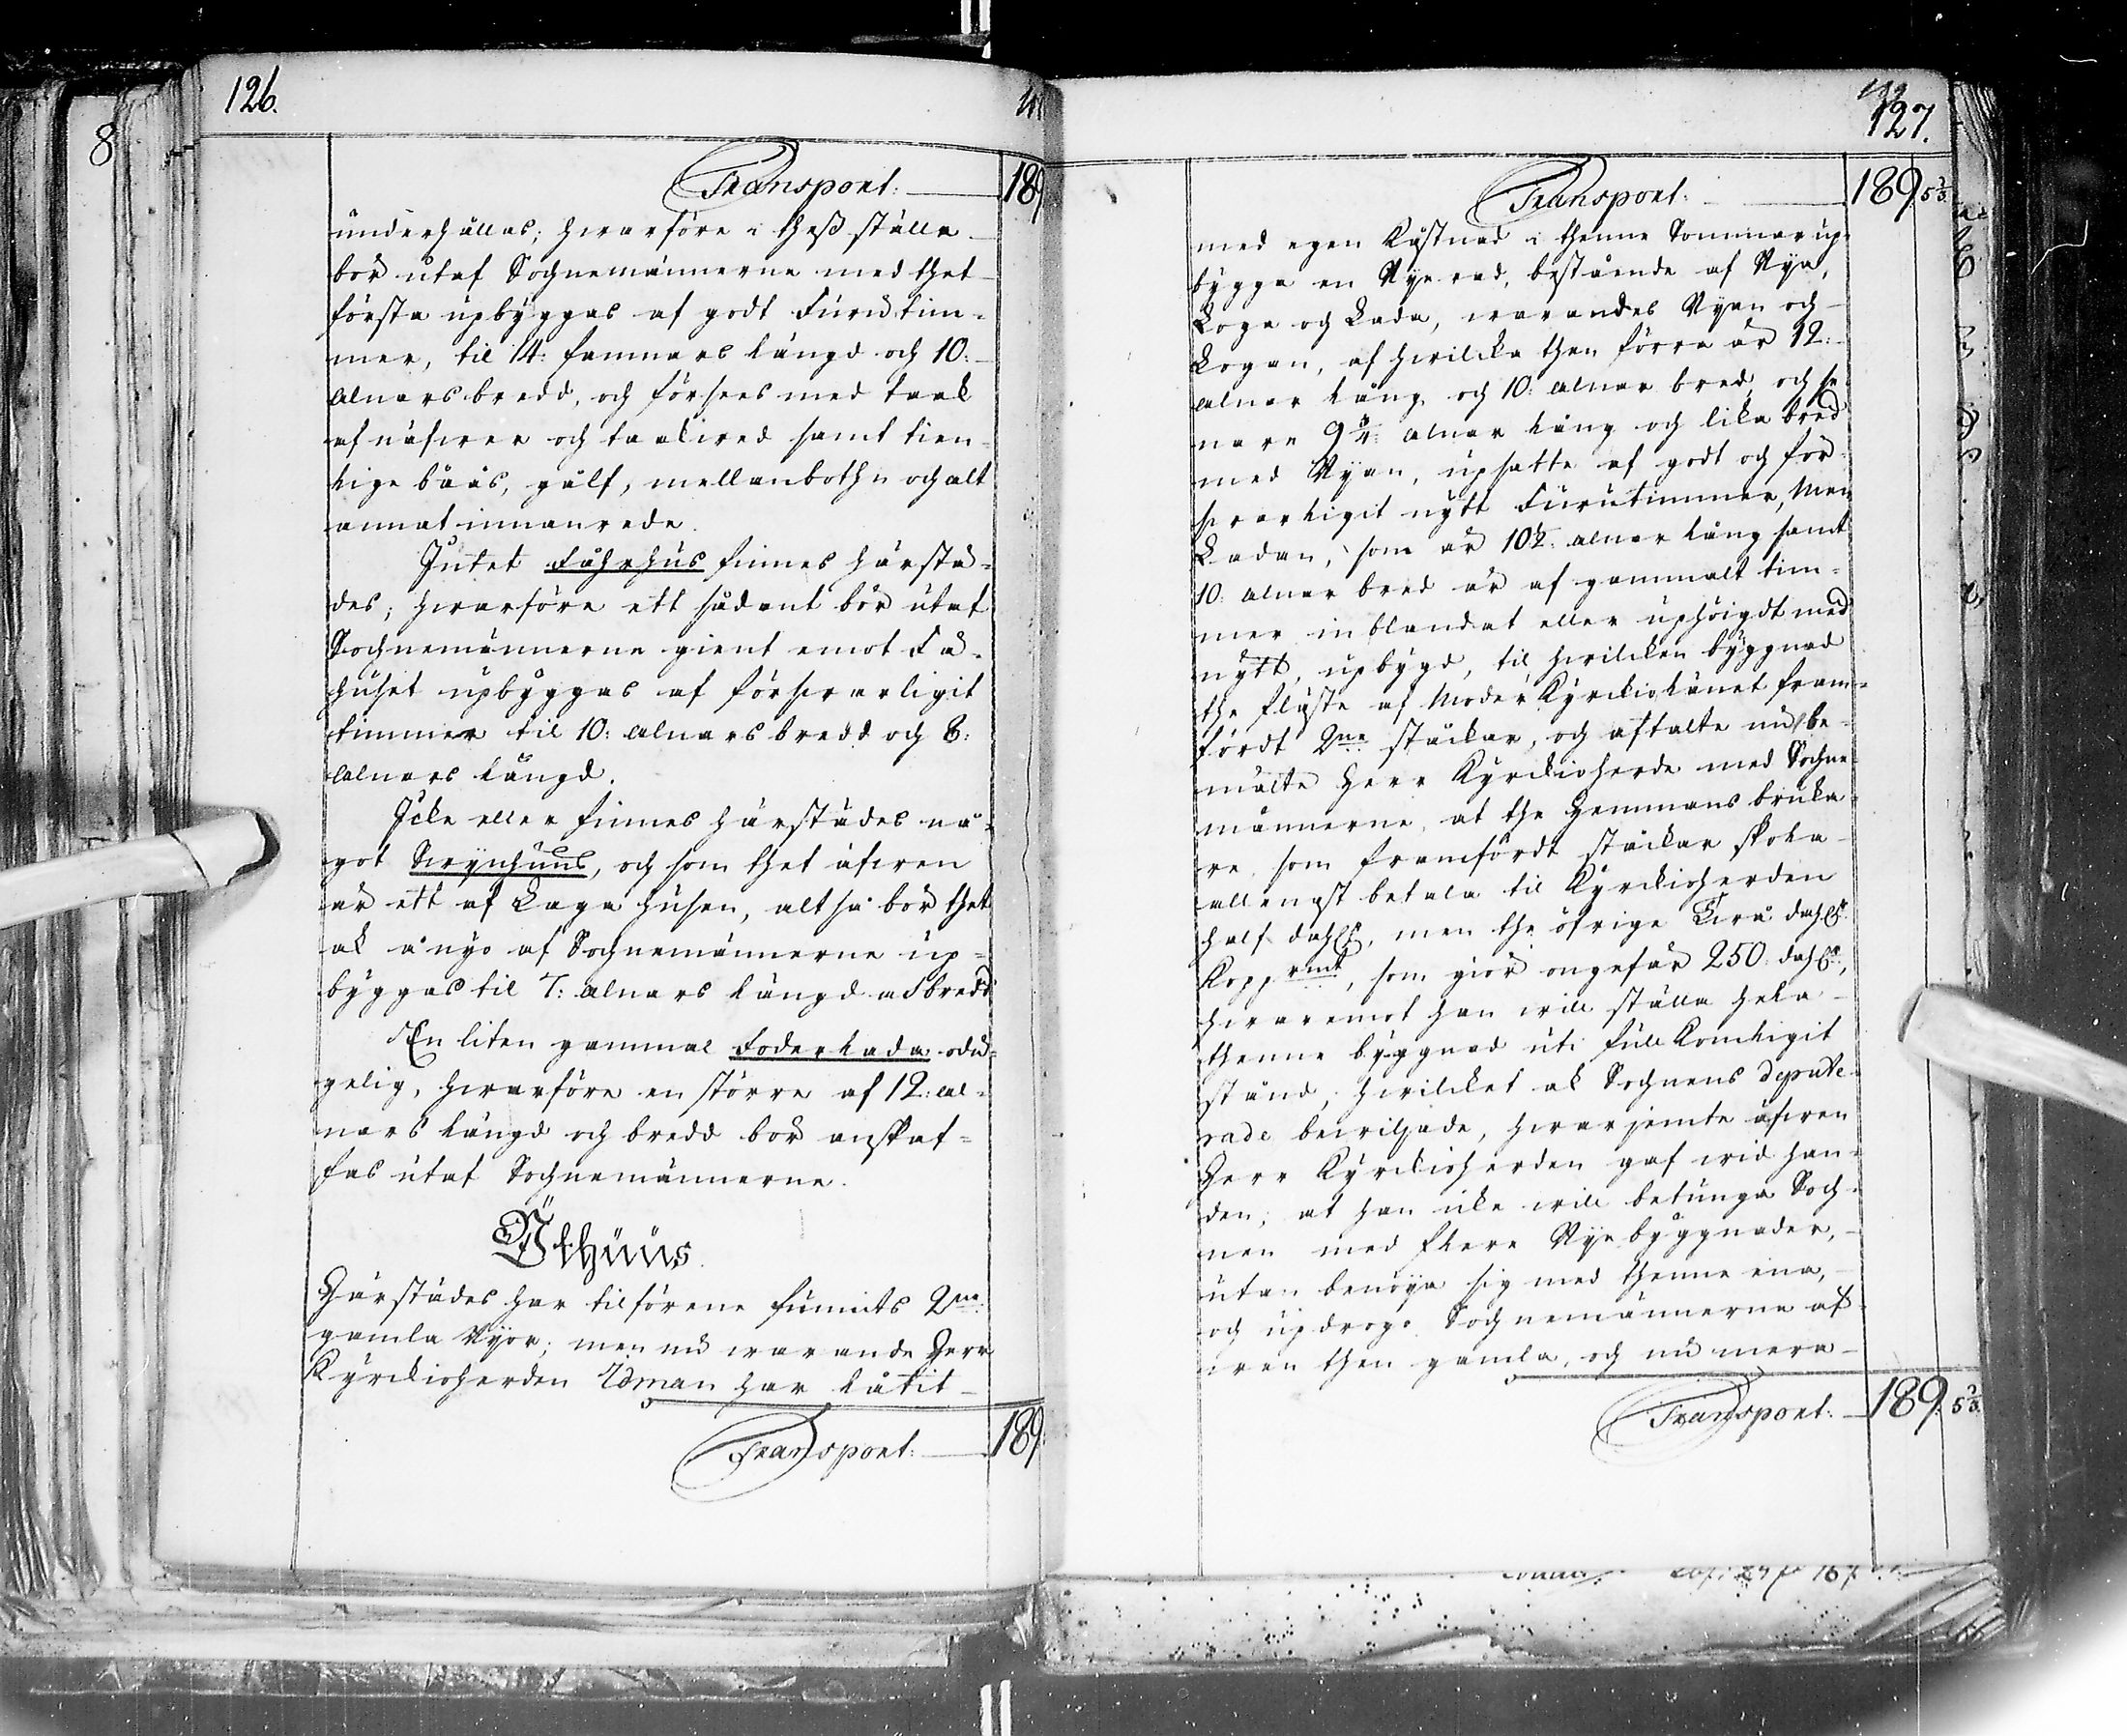 126.
Transport: 189
underhållas; hwarföre i theß ställe
bör utaf Sochnemännerne med thet
första upbyggas af godt Furutim-
mer, til 14: famnars längd och 10:
alnars bredd, och försees med taak
af näfwer och taakwed samt tien-
lige båås, gålf, mellanbothn och alt
annat innanrede.
Intet Fåhrhus finnes härstä-
des; hwarföre ett sådant bör utaf
Sochnemännerne gient emot Fä-
huset upbyggas af förswarligit
timmer til 10: alnars bredd och 8:
alnars längd.
Icke eller finnes härstädes nå-
got Swynhuus, och som thet äfwen
är ett af Laga husen, altså bör thet
ak å nyo af Sochnemännerne up-
byggas til 7: alnars längd och bredd
En liten gammal Foderlada odu-
gelig, hwarföre en större af 12: al-
nars längd och bredd bör anskaf-
fas utaf Sochnemännerne.
Uthuus.
Härstädes har tilförene funnits 2ne
gamla Ryor; men nu warande Herr
Kyrckioherden Ydman har låtit
Transport: 189
127.
Transport: 189. 5 2/3.
med egen Kåstnad i thenne Sommar up-
bygga en Rya rad, bestående af Rya,
Loga och Lada, warandes Ryan och
Logan, af hwilcka then förra är 12:
alnar lång och 10: alnar bred, och se-
nare 9 3/4: alnar lång och lika bred
med Ryan, upsatte af godt och för-
swarligit nytt Furutimmer, Men
Ladan, som är 10 1/2: alnar lång samt
10: alnar bred är af gammalt tim-
mer inblandat eller uphöigdt med
nytt, upbygd, til hwilcken byggnad
the flaste af Moder Kyrckiolänet fram-
fördt 2ne ståckar, och aftalte nu be-
mälte Herr Kyrckioherde med Sochne-
männerne, at the Hemmans bruka-
re, som framfördt ståckar skola
allenast betala til Kyrckioherden
half dahlr, men the öfrige Twå dahlr
Kopprmt, som giör ongefär 250: dahlr,
hwaremot han will ställa hela
thenne byggnad uti fullkomligit
stånd, hwilcket ak Sochnens depute-
rade bewiljade, hwarjemte äfwen
Herr Kyrckioherden gaf wid han-
den, at han icke will betunga Soch-
nen med flere Rye byggnader,
utan benöya sig med thenne ena,
och updrogo Sochnemännerne äf-
wen then gamla, och nu mera
Transport: 189. 5 2/3.